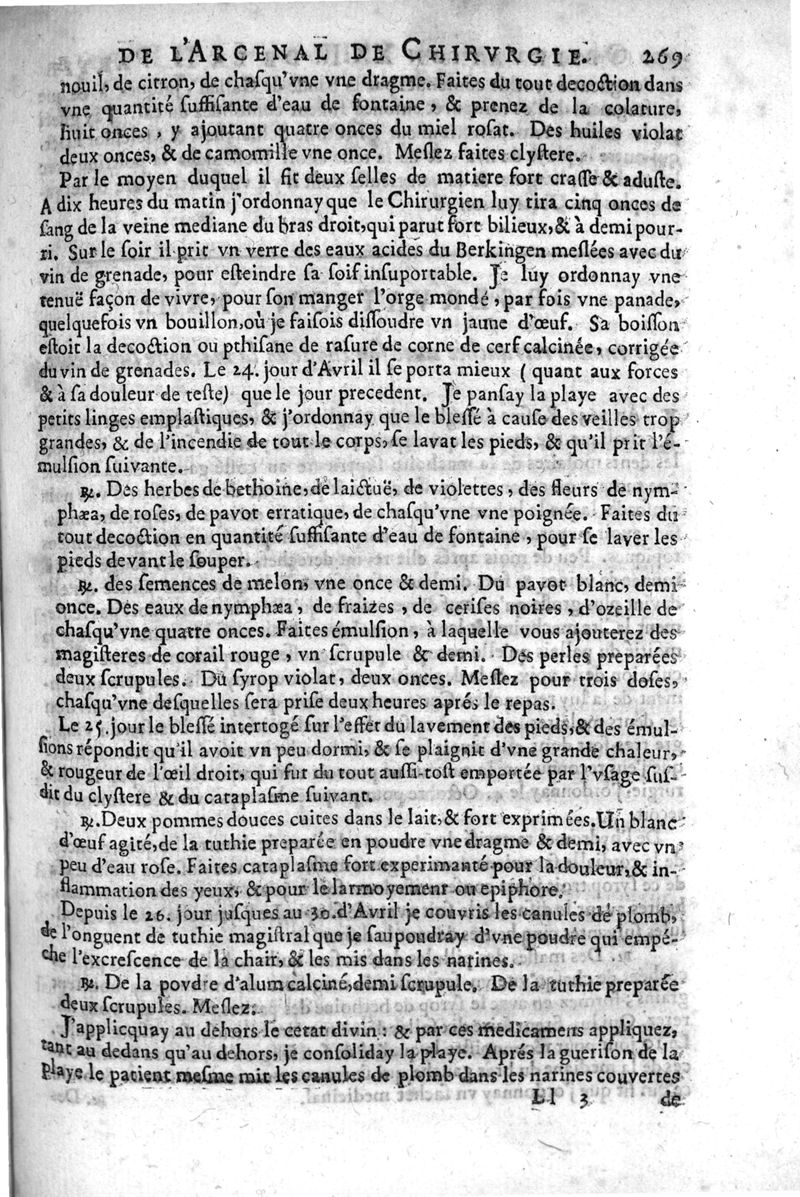 DE L'ARCENAL DE CHIRVRGIE. 269
nouil, de citron, de chaſqu'vne vne dragme. Faites du tout decoction dans
vne quantité ſuffiſante d'eau de fontaine, & prenez de la colature,
huit onces, y ajoutant quatre onces du miel roſat. Des huiles violat
deux onces, & de camomille vne once. Meſlez faites clyſtere.
Par le moyen duquel il fit deux ſelles de matiere fort craſſe & aduſte.
A dix heures du matin j'ordonnay que le Chirurgien luy tira cinq onces de
ſang de la veine mediane du bras droit, qui parut fort bilieux, & à demi pour-
ri. Sur le ſoir il prit vn verre des eaux acides du Berkingen meſlées avec du
vin de grenade, pour eſteindre ſa ſoif inſuportable. Je luy ordonnay vne
tenuë façon de vivre, pour ſon manger l'orge mondé, par fois vne panade,
quelquefois vn bouillon, où je faiſois diſſoudre vn jaune d'œuf. Sa boiſſon
eſtoit la decoction ou pthiſane de raſure de corne de cerf calcinée, corrigée
du vin de grenades. Le 24. jour d'Avril il ſe porta mieux (quant aux forces
& à ſa douleur de teſte) que le jour precedent. Je panſay la playe avec des
petits linges emplaſtiques, & j'ordonnay que le bleſſé à cauſe des veilles trop
grandes, & de l'incendie de tout le corps, ſe lavat les pieds, & qu'il prit l'é-
mulſion ſuivante.
℞. Des herbes de bethoine, de laictuë, de violettes, des fleurs de nym-
phæa, de roſes, de pavot erratique, de chaſqu'vne vne poignée. Faites du
tout decoction en quantité ſuffiſante d'eau de fontaine, pour ſe laver les
pieds devant le ſouper.
℞. des ſemences de melon, vne once & demi. Du pavot blanc, demi
once. Des eaux de nymphæa, de fraizes, de ceriſes noires, d'ozeille de
chaſqu'vne quatre onces. Faites émulſion, à laquelle vous ajouterez des
magiſteres de corail rouge, vn ſcrupule & demi. Des perles preparées
deux ſcrupules. Du ſyrop violat, deux onces. Meſlez pour trois doſes,
chaſqu'vne deſquelles ſera priſe deux heures aprés le repas.
Le 25. jour le bleſſé interrogé ſur l'effet du lavement des pieds, & des émul-
ſions répondit qu'il avoit vn peu dormi, & ſe plaignit d'vne grande chaleur,
& rougeur de l'œil droit, qui fut du tout auſſi-toſt emportée par l'vſage ſuſ-
dit du clyſtere & du cataplaſme ſuivant.
℞. Deux pommes douces cuites dans le lait, & fort exprimées. Un blanc
d'œuf agité, de la tuthie preparée en poudre vne dragme & demi, avec vn
peu d'eau roſe. Faites cataplaſme fort experimanté pour la douleur, & in-
flammation des yeux, & pour le larmoyement ou epiphore.
Depuis le 26. jour juſques au 30. d'Avril je couvris les canules de plomb,
de l'onguent de tuthie magiſtral que je ſaupoudray d'vne poudre qui empé-
che l'excreſcence de la chair, & les mis dans les narines.
℞. De la povdre d'alum calciné, demi ſcrupule. De la tuthie preparée
deux ſcrupules. Meſlez.
J'applicquay au dehors le cerat divin: & par ces medicamens appliquez,
tant au dedans qu'au dehors, je conſoliday la playe. Aprés la gueriſon de la
playe le patient meſme mit les canules de plomb dans les narines couvertes
Ll 3 de